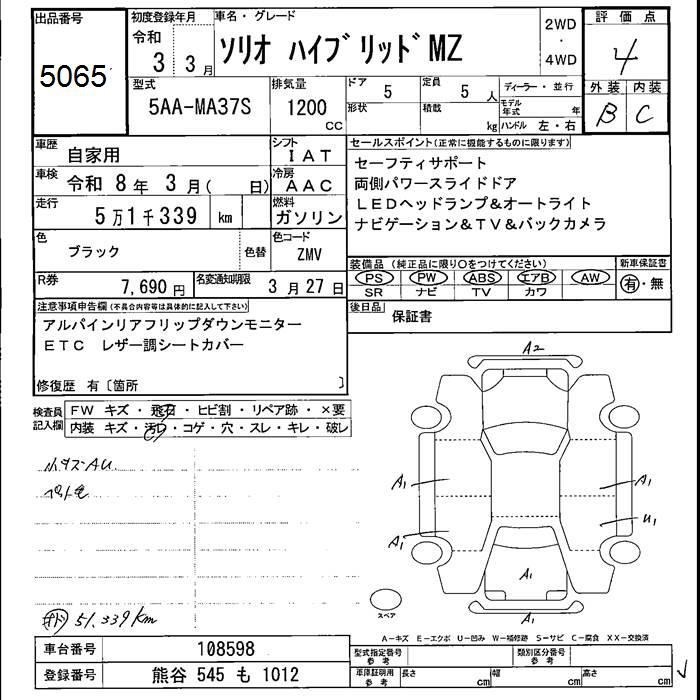 出品番号
5065
初度登録年月
令和
3 3月
車名・グレード
ソリオ ハイブリッドMZ
2WD
・
4WD
評価点
4
外装 内装
B C
型式
5AA-MA37S
排気量
1200
CC
ドア
5
定員
5 人
形状
積載
kg
ディーラー・並行
モデル年式 年
ハンドル 左・右
車歴
自家用
シフト
IAT
車検
令和 8年 3月( 日)
冷房
AAC
走行
5万1千339 km
燃料
ガソリン
色
ブラック
色替
色コード
ZMV
R券
7,690円
名変通知期限
3月27日
セールスポイント(正常に機能するものに限ります)
セーフティサポート
両側パワースライドドア
LEDヘッドランプ&オートライト
ナビゲーション&TV&バックカメラ
装備品(純正品に限り○をつけてください)
PS PW ABS エアB AW
SR ナビ TV カワ
新車保証書
有・無
後日品
保証書
注意事項申告欄(不具合内容等は具体的に記入して下さい)
アルパインリアフリップダウンモニター
ETC レザー調シートカバー
修復歴 有〔箇所 〕
検査員
記入欄
FW キズ・飛石・ヒビ割・リペア跡・×要
内装 キズ・汚れ・コゲ・穴・スレ・キレ・破レ
51,339km
A2
A1
A1
A1
U1
A1
A1
スペア
A-キズ E-エクボ U-凹み W-補修跡 S-サビ C-腐食 XX-交換済
車台番号
108598
登録番号
熊谷 545 も 1012
型式指定番号
参考
類別区分番号
参考
車庫証明用
参考
長さ cm
幅 cm
高さ cm